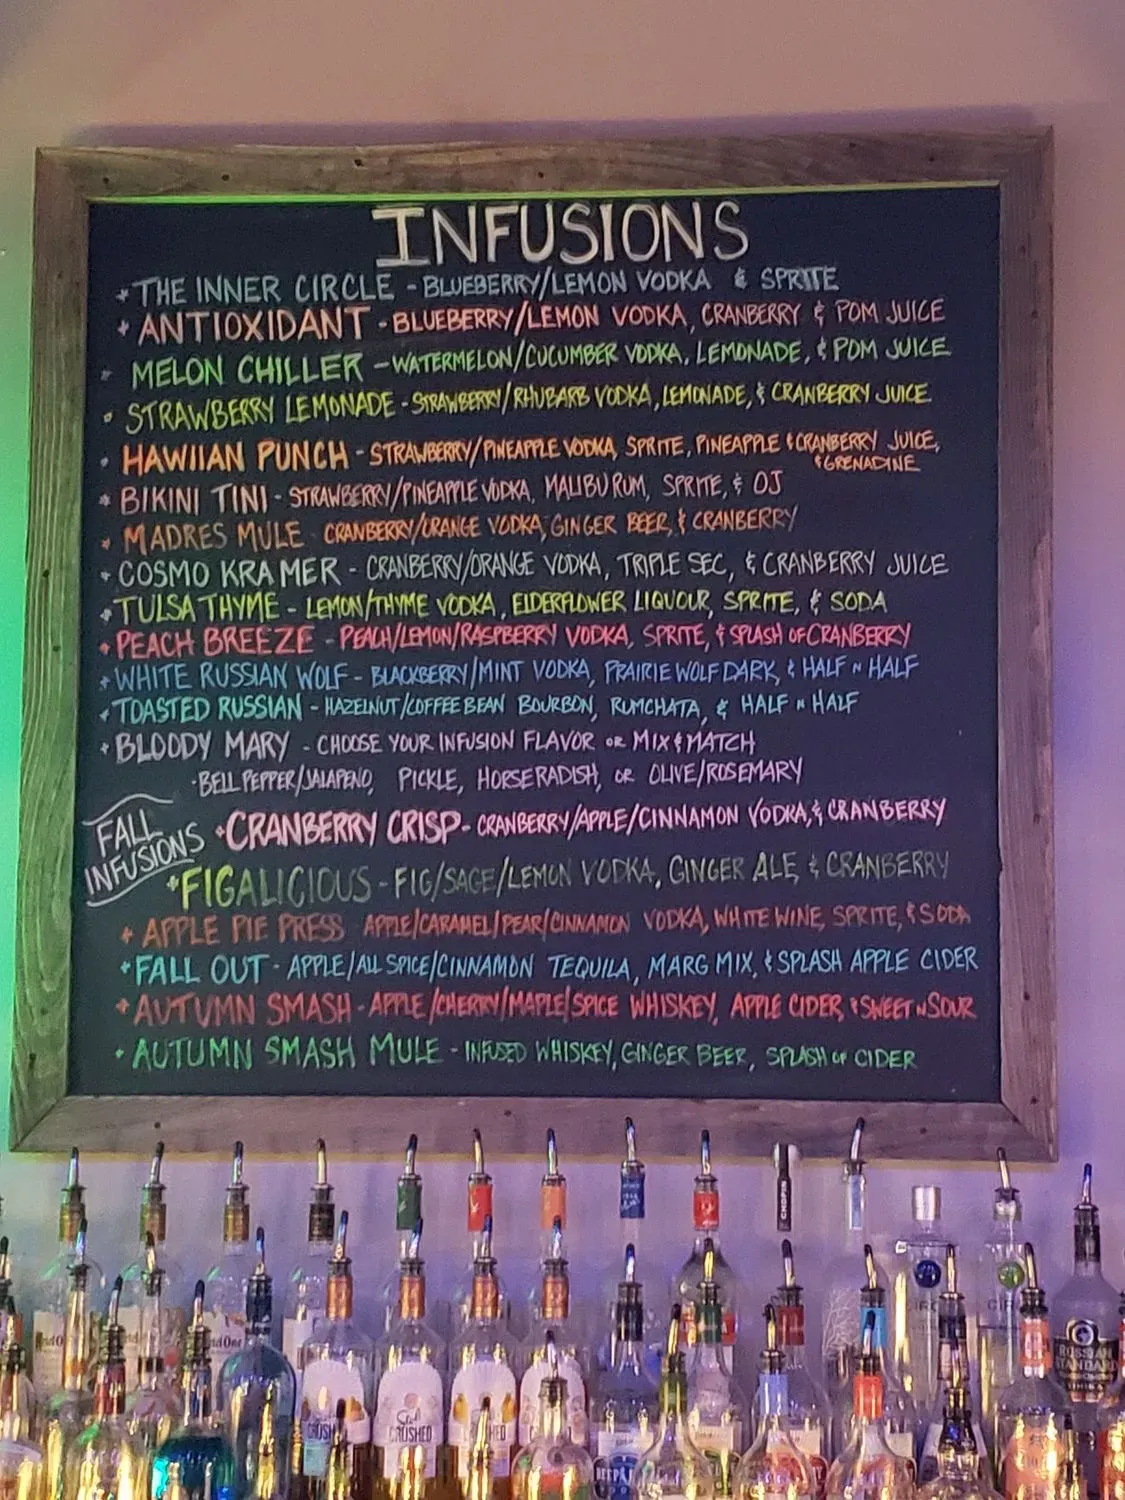 INFUSIONS
THE INNER CIRCLE - BLUEBERRY/LEMON VODKA & SPRITE
ANTIOXIDANT - BLUEBERRY/LEMON VODKA, CRANBERRY & POM JUICE
MELON CHILLER - WATERMELON/CUCUMBER VODKA, LEMONADE, & POM JUICE
STRAWBERRY LEMONADE - STRAWBERRY/RHUBARB VODKA, LEMONADE, & CRANBERRY JUICE
HAWIIAN PUNCH - STRAWBERRY/PINEAPPLE VODKA, SPRITE, PINEAPPLE & CRANBERRY JUICE,
& GRENADINE
BIKINI TINI - STRAWBERRY/PINEAPPLE VODKA, MALIBU RUM, SPRITE, & OJ
MADRES MULE CRANBERRY/ORANGE VODKA, GINGER BEER, & CRANBERRY
COSMO KRAMER - CRANBERRY/ORANGE VODKA, TRIPLE SEC, & CRANBERRY JUICE
TULSA THYME - LEMON/THYME VODKA, ELDERFLOWER LIQUOUR, SPRITE, & SODA
PEACH BREEZE - PEACH/LEMON/RASPBERRY VODKA, SPRITE, & SPLASH OF CRANBERRY
WHITE RUSSIAN WOLF - BLACKBERRY/MINT VODKA, PRAIRIE WOLF DARK, & HALF N HALF
TOASTED RUSSIAN - HAZELNUT/COFFEE BEAN BOURBON, RUMCHATA, & HALF N HALF
BLOODY MARY - CHOOSE YOUR INFUSION FLAVOR OR MIX & MATCH
- BELL PEPPER/JALAPENO, PICKLE, HORSERADISH, OR OLIVE/ROSEMARY
FALL
INFUSIONS
CRANBERRY CRISP - CRANBERRY/APPLE/CINNAMON VODKA, & CRANBERRY
FIGALICIOUS - FIG/SAGE/LEMON VODKA, GINGER ALE, & CRANBERRY
APPLE PIE PRESS APPLE/CARAMEL/PEAR/CINNAMON VODKA, WHITE WINE, SPRITE, & SODA
FALL OUT - APPLE/ALL SPICE/CINNAMON TEQUILA, MARG MIX, & SPLASH APPLE CIDER
AUTUMN SMASH - APPLE/CHERRY/MAPLE/SPICE WHISKEY, APPLE CIDER, & SWEET N SOUR
AUTUMN SMASH MULE - INFUSED WHISKEY, GINGER BEER, SPLASH OF CIDER
CHOPIN
CIROC
RUSSIAN
STANDARD
CRUSHED